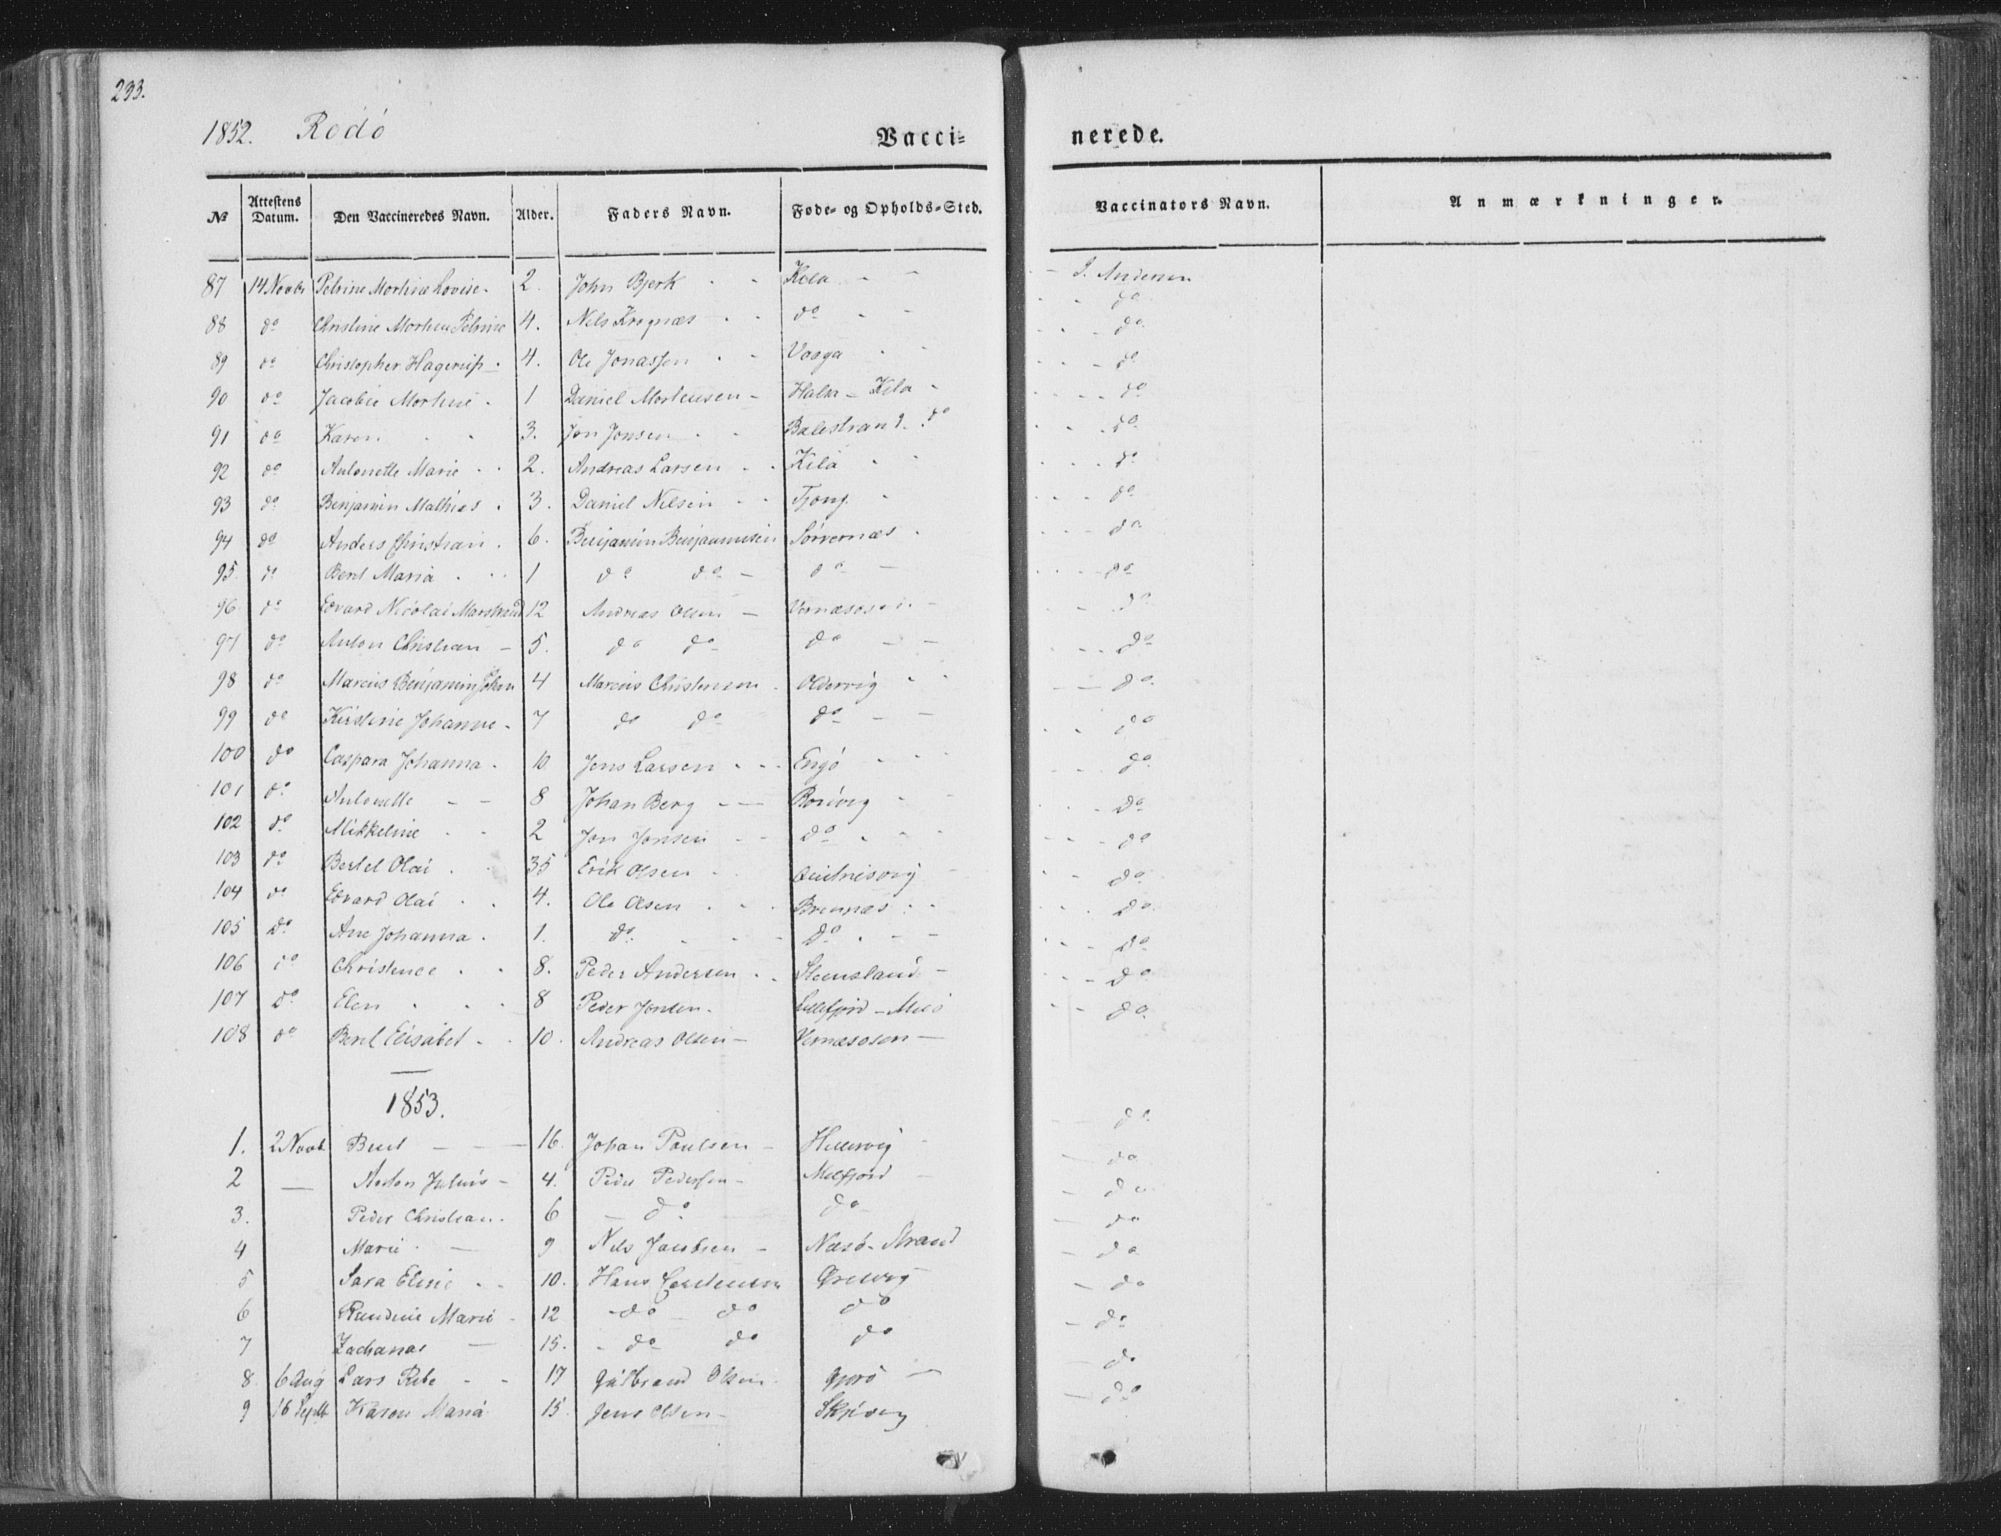 233.
1852. Rodö
Vacci= nerede.
No Attestens Datum. Den Vaccineredes Navn. Alder. Faders Navn. Føde- og Opholds-Sted. Vaccinators Navn. Anmærkninger.
87 14 Novbr Petrine Morline Lovise 2. John Bjerk Kila J. Andersen
88 do Christine Morten Petrine 4. Nils Krognæs do do
89 do Christopher Hagerup 4. Ole Jonassen Vaaga do
90 do Jacobie Mortine 1 Daniel Mortensen Kila do
91 do Karen 3. Jon Jonsen Balestrand do do
92 do Antonette Marie 2. Andreas Larsen Kila do
93 do Benjamin Mathias 3. Daniel Nilsen Tjong do
94 do Anders Christian 6. Benjamin Benjaminsen Sørvernæs do
95 do Beret Maria 1 do do do do
96 do Edvard Nicolai Marstrand 12 Andreas Olsen do
97 do Anton Christian 5. do do do do
98 do Marcus Benjamin Johan 4 Marcus Christensen Oldervig do
99 do Kirstine Johanne 7 do do do do
100 do Caspara Johanna 10 Jens Larsen Engö do
101 do Antonette 8 Johan Berg do
102 do Mikkeline 2 Jon Jonsen do do
103 do Bertel Olai 35 Erik Olsen do
104 do Edvard Olai 4. Ole Olsen Brennæs do
105 do Ane Johanna 1. do do do
106 do Christence 8. Peder Andersen Steensland do
107 do Elen 8 Peder Jonsen Lillefjord do
108 do Beret Elisabet 10. Andreas Olsen Vernæsosen do
1853.
1. 2 Novb. Beret 16. Johan Paulsen Hellervig do
2 — Anton Julius 4. Peder Pedersen Melfjord do
3. Peder Christian 6 do do do
4 Marie 9 Nils Jacobsen Næsö Strand do
5 Sara Elise 10. Hans Carstensen do
6 Randine Marie 12 do do do do
7 Zacharias 15. do do do do
8 6 Aug Lars 17 Gulbrand Olsen Gjerö do
9 16 Septb Karen Maria 15. Jens Olsen do